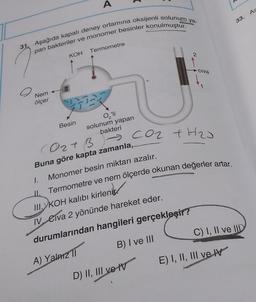 A
33.
31. Aşağıda kapalı deney ortamına oksijenli solunum ya-
pan bakteriler ve monomer besinler konulmuştur.
KOH Termometre
2
cıva
1
Nem
ölçer
Besin
O₂'li
solunum yapan
bakteri
O₂ + B → CO₂ + H₂O
Buna göre kapta zamanla,
I. Monomer besin miktarı azalır.
II. Termometre ve nem ölçerde okunan değerler artar.
III. KOH kalıbı kirlenir.
IV. Cıva 2 yönünde hareket eder.
durumlarından hangileri gerçekleşir?
A) Yalnız II
B) I ve III
C) I, II ve III
D) II, III ve IV
E) I, II, III ve IV